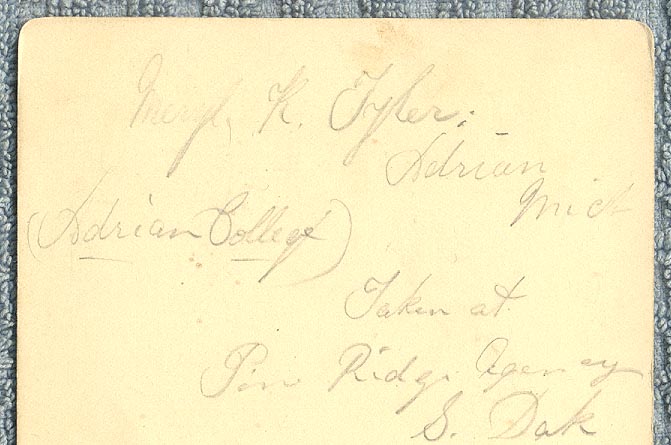 Meryl K. Tyler.
Adrian
Mich
(Adrian College)
Taken at
Pine Ridge Agency
S. Dak